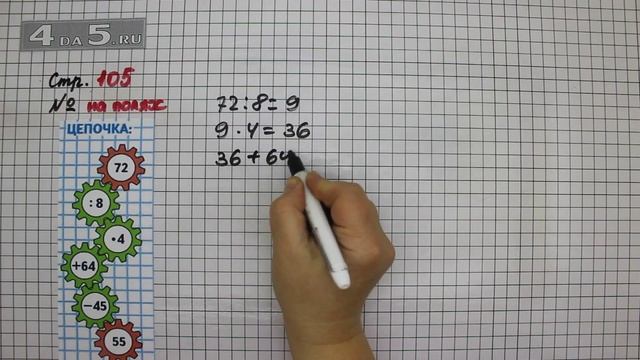 4DA5.RU
Стр. 105
№ на полях
ЦЕПОЧКА:
72
:8
•4
+64
−45
55
72:8=9
9·4=36
36+64